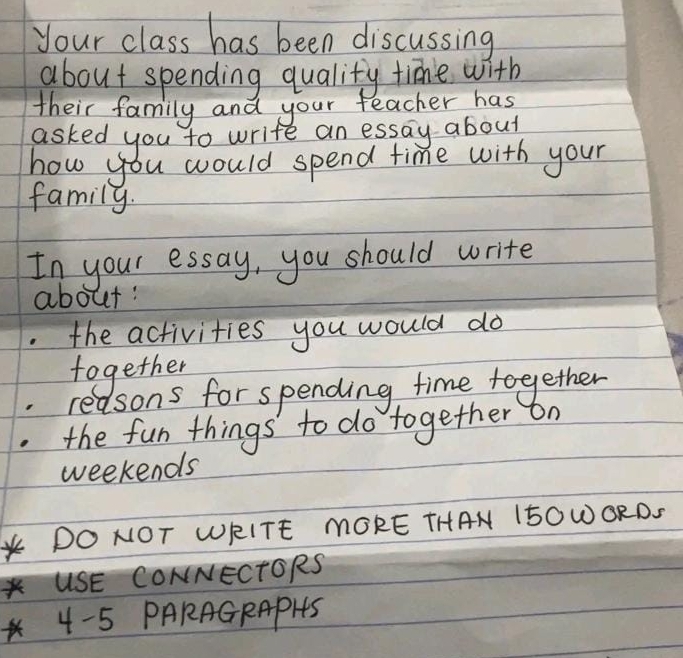 Your class has been discussing
about spending quality time with
their family and your teacher has
asked you to write an essay about
how you would spend time with your
family.
In your essay, you should write
about:
• the activities you would do
together
• reasons for spending time together
• the fun things to do together on
weekends
* DO NOT WRITE MORE THAN 150 WORDs
* USE CONNECTORS
* 4-5 PARAGRAPHS